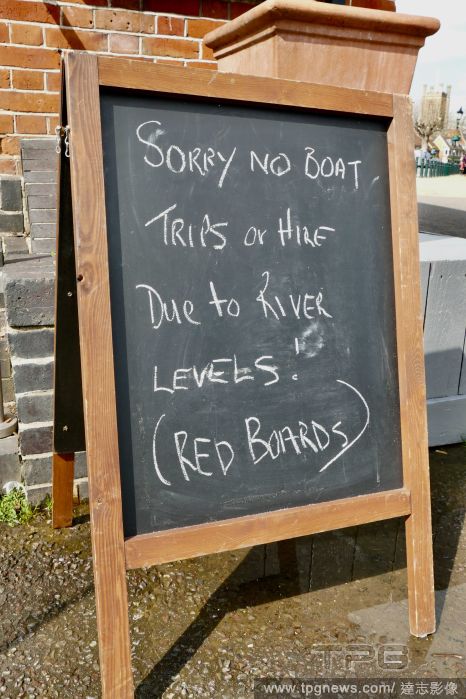 SORRY NO BOAT
TRIPS or HIRE
DUE to RIVER
LEVELS!
(RED BOARDS)
TPG
www.tpgnews.com/ 達志影像